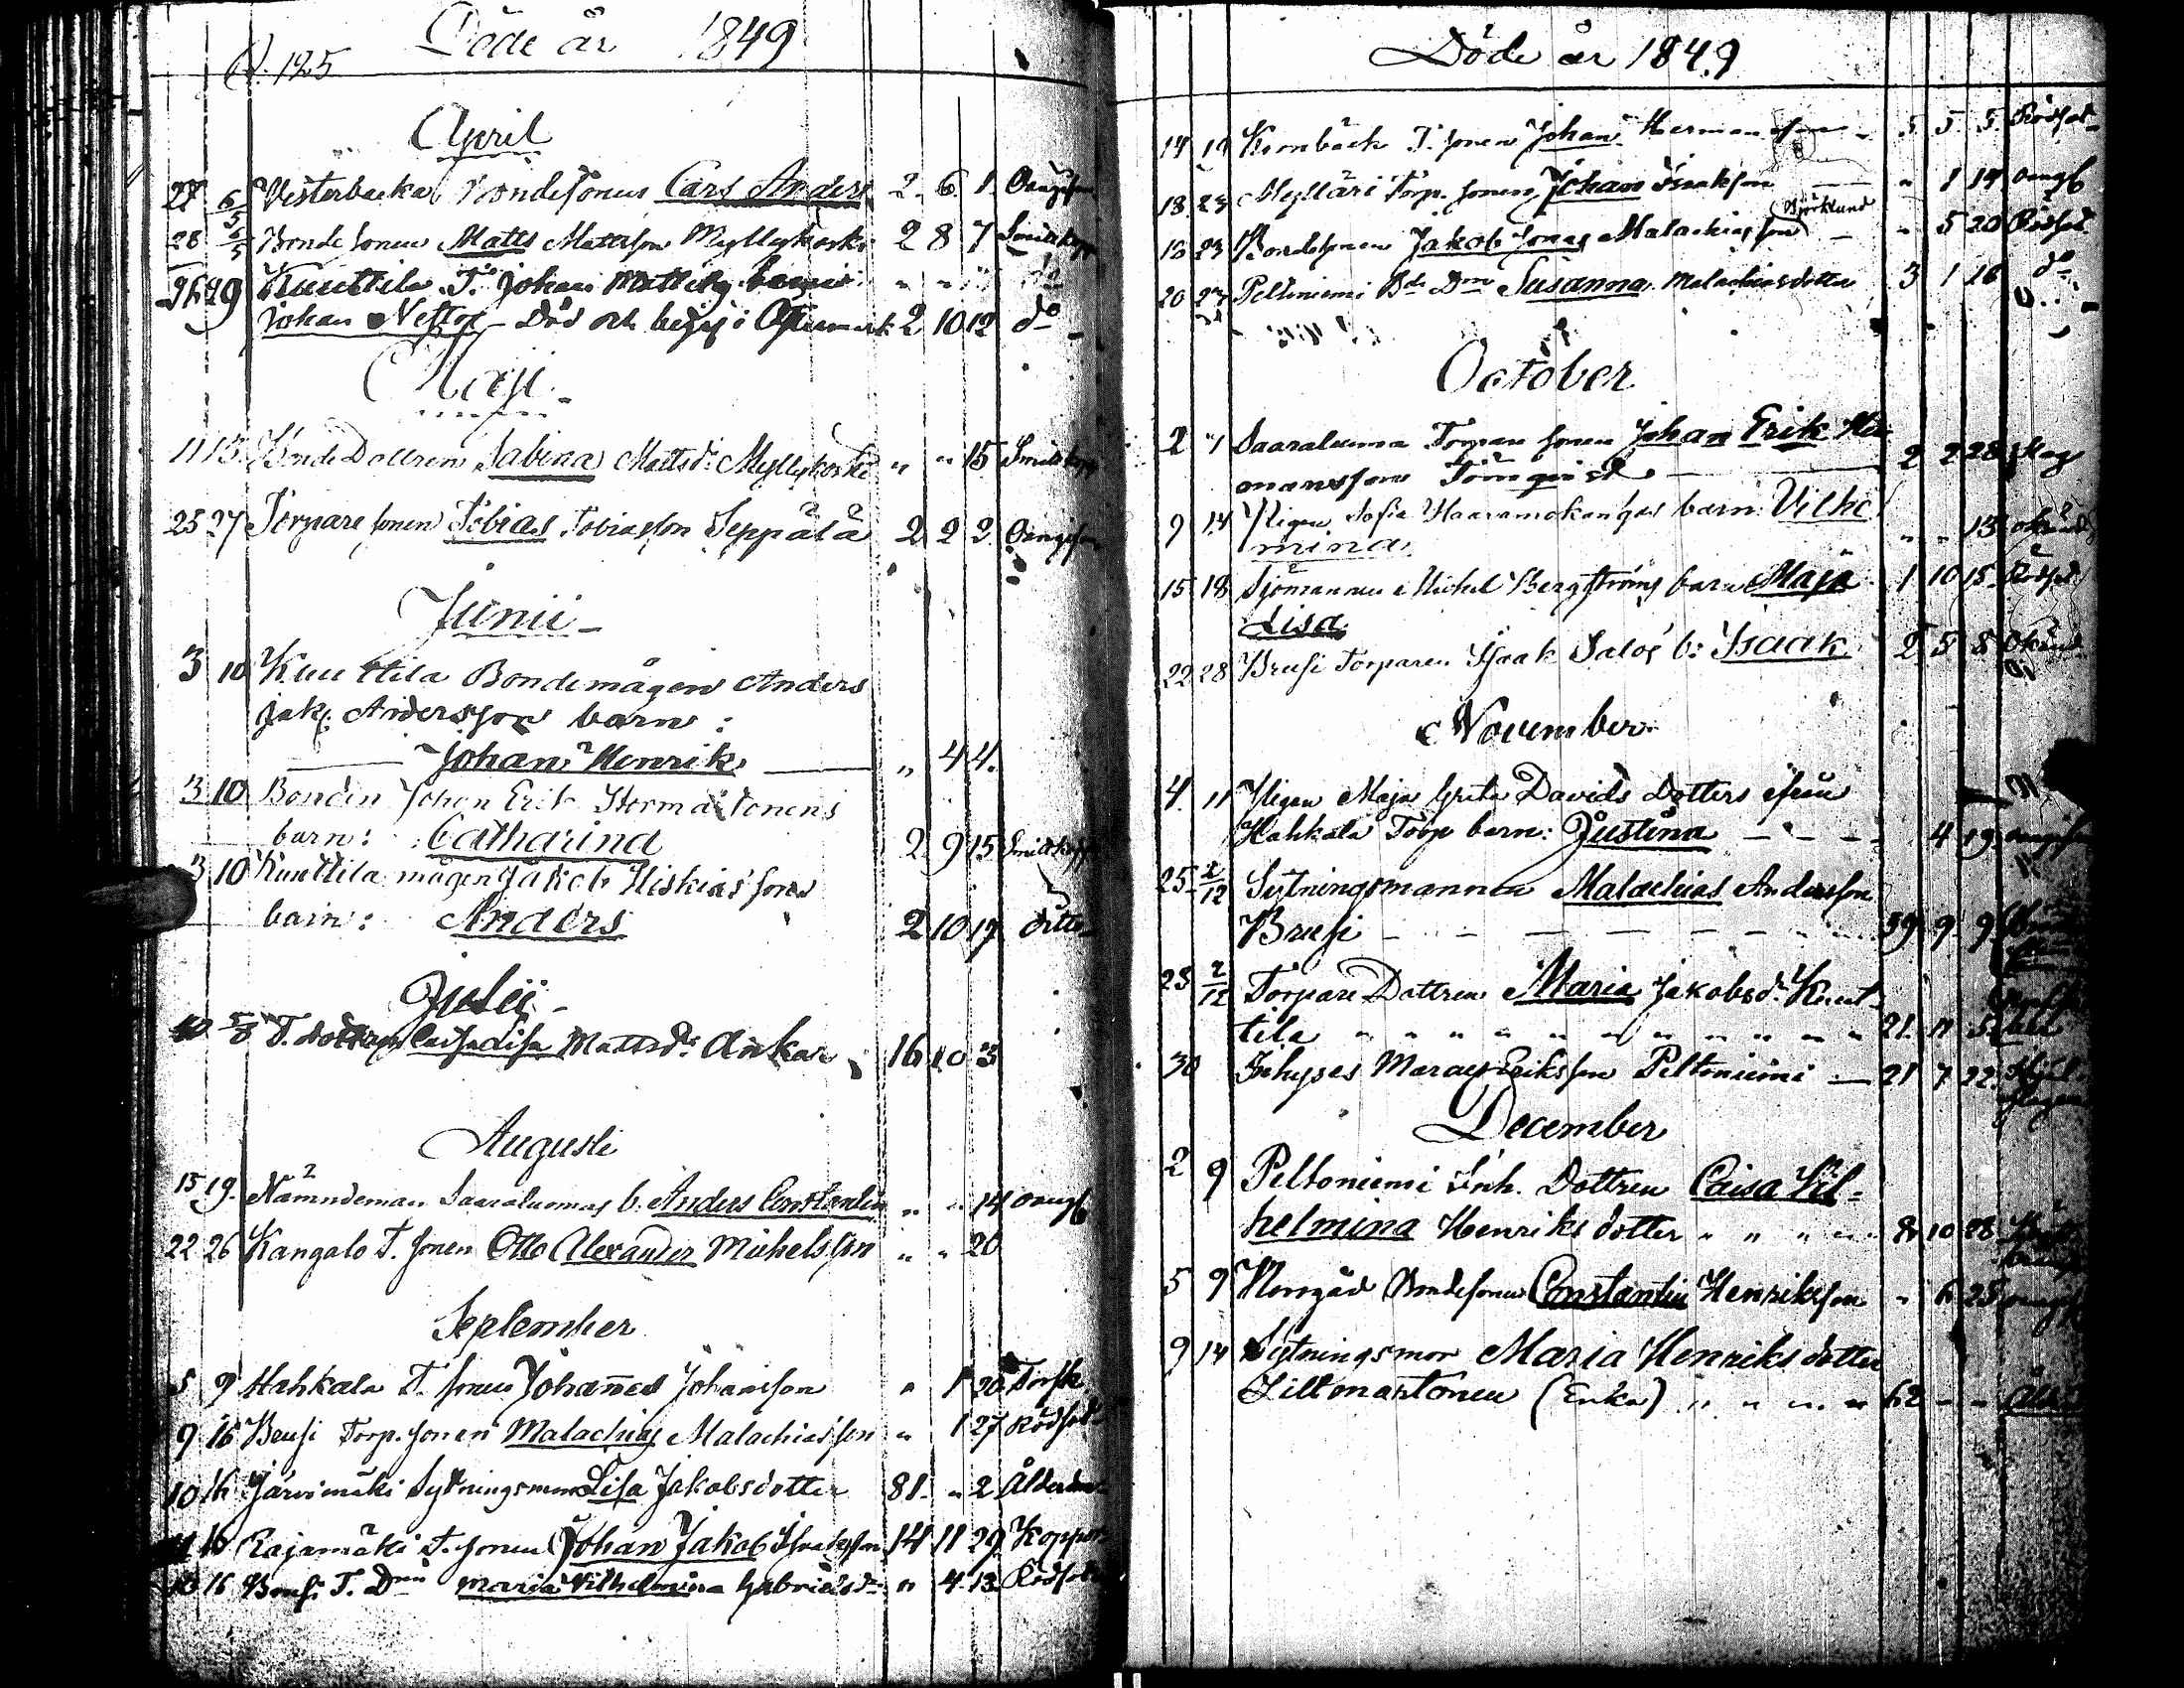 Döde år 1849
125
April
27 6/5 Vesterbacka Bondesonen Cars Anders 2. 6. 1. Oangifven
28 6/5 Bonde sonen Matts Mattsson Myllykoski 2 8 7 Smittkopp
26 29 Kuuttila T. Johan Mattss barn do
Johan Nestor - Död och begr. i Östermark 2 10 12 do
Maji
11 13 Bonde Dottren Sabina Mattsdr Myllykoski " " 15 Smittkopp
25 27 Torpare sonen Tobias Tobiasson Seppälä 2 2 2 Oangifven
Junii
3 10 Kuuttila Bondemågen Anders
Jak. Andersson barn:
Johan Henrik " 4 4.
3 10 Bonden Johan Erik Stormartonens
barn: Catharina 2 9 15 Smittkopp
3 10 Kuuttila mågen Jakob Hiskiassons
barn: Anders 2 10 17 ditto
Julii
5/8 T. dottren Caisa Lisa Mattsdr Ånkar 16 10 3
Augusti
15 19. Nämndeman Saaraluomas b. Anders Constantin " " 14 oangf
22 26 Kangalo T. sonen Otto Alexander Michelsson " " 20
September
5 9 Hahkala T. sonen Johannes Johansson " 1 20 Torsk
9 16 Brusi Torp. sonen Malachias Malachiasson " 1 27 Rödsot
10 16 Järvimäki Sytningsmor Lisa Jakobsdotter 81. " 2 Ålderdom
11 16 Rajamäki T. sonen Johan Jakob Isaksson 14 11 29 Koppor
16 Brusi T. Drn Maria Vilhelmina Gabrielsdr " 4 13 Rödsot
Döde år 1849
14 19 Kornbäck T. sonen Johan Hermansson 5 5 5. Rödsot
18. 23 Mylläri Torp. sonen Johan Isaksson " 1 14 oangf
Björklund
18 23 Bondesonen Jakob Jonas Malachiasson " 5 20 Rödsot
20 23 Peltoniemi Bde Drn Susanna Malachiasdotter 3 1 16 do
October
2 7 Saaraluoma Torpare sonen Johan Erik Her-
mansson Törnqvist 2 2 28 Slag
9 14 Pigan Sofia Haaramokangas barn: Vilhel
mina " " 13 okänd
15 18 Sjömannen Michel Bergströms barn Maja 1 10 15 Rödsot
Lisa
22 28 Brusi Torparen Isaak Salos b: Isaak 2 5 8 Okänd
November
4. 11 Pigan Maja Greta Davids Dotters
Hahkala Torp barn: Justina 4 19 oangifven
25 2/12 Sytningsmannen Malachias Andersson
Brusi 59 9 9
25 2/12 Torpare Dottren Maria Jakobsdr Kuut-
tila 21. 11 5
30 Inhyses Erikssen Peltoniemi 21 7 22
December
2 9 Peltoniemi Inh. Dottren Caisa Vil-
helmina Henriks dotter 10 28
5 9 Norrgård Bondesonen Constantin Henriksson " 6 25 oangf
9 14 Sytningsmor Maria Henriks dotter
Lillmartonen (Enka) 62 - -